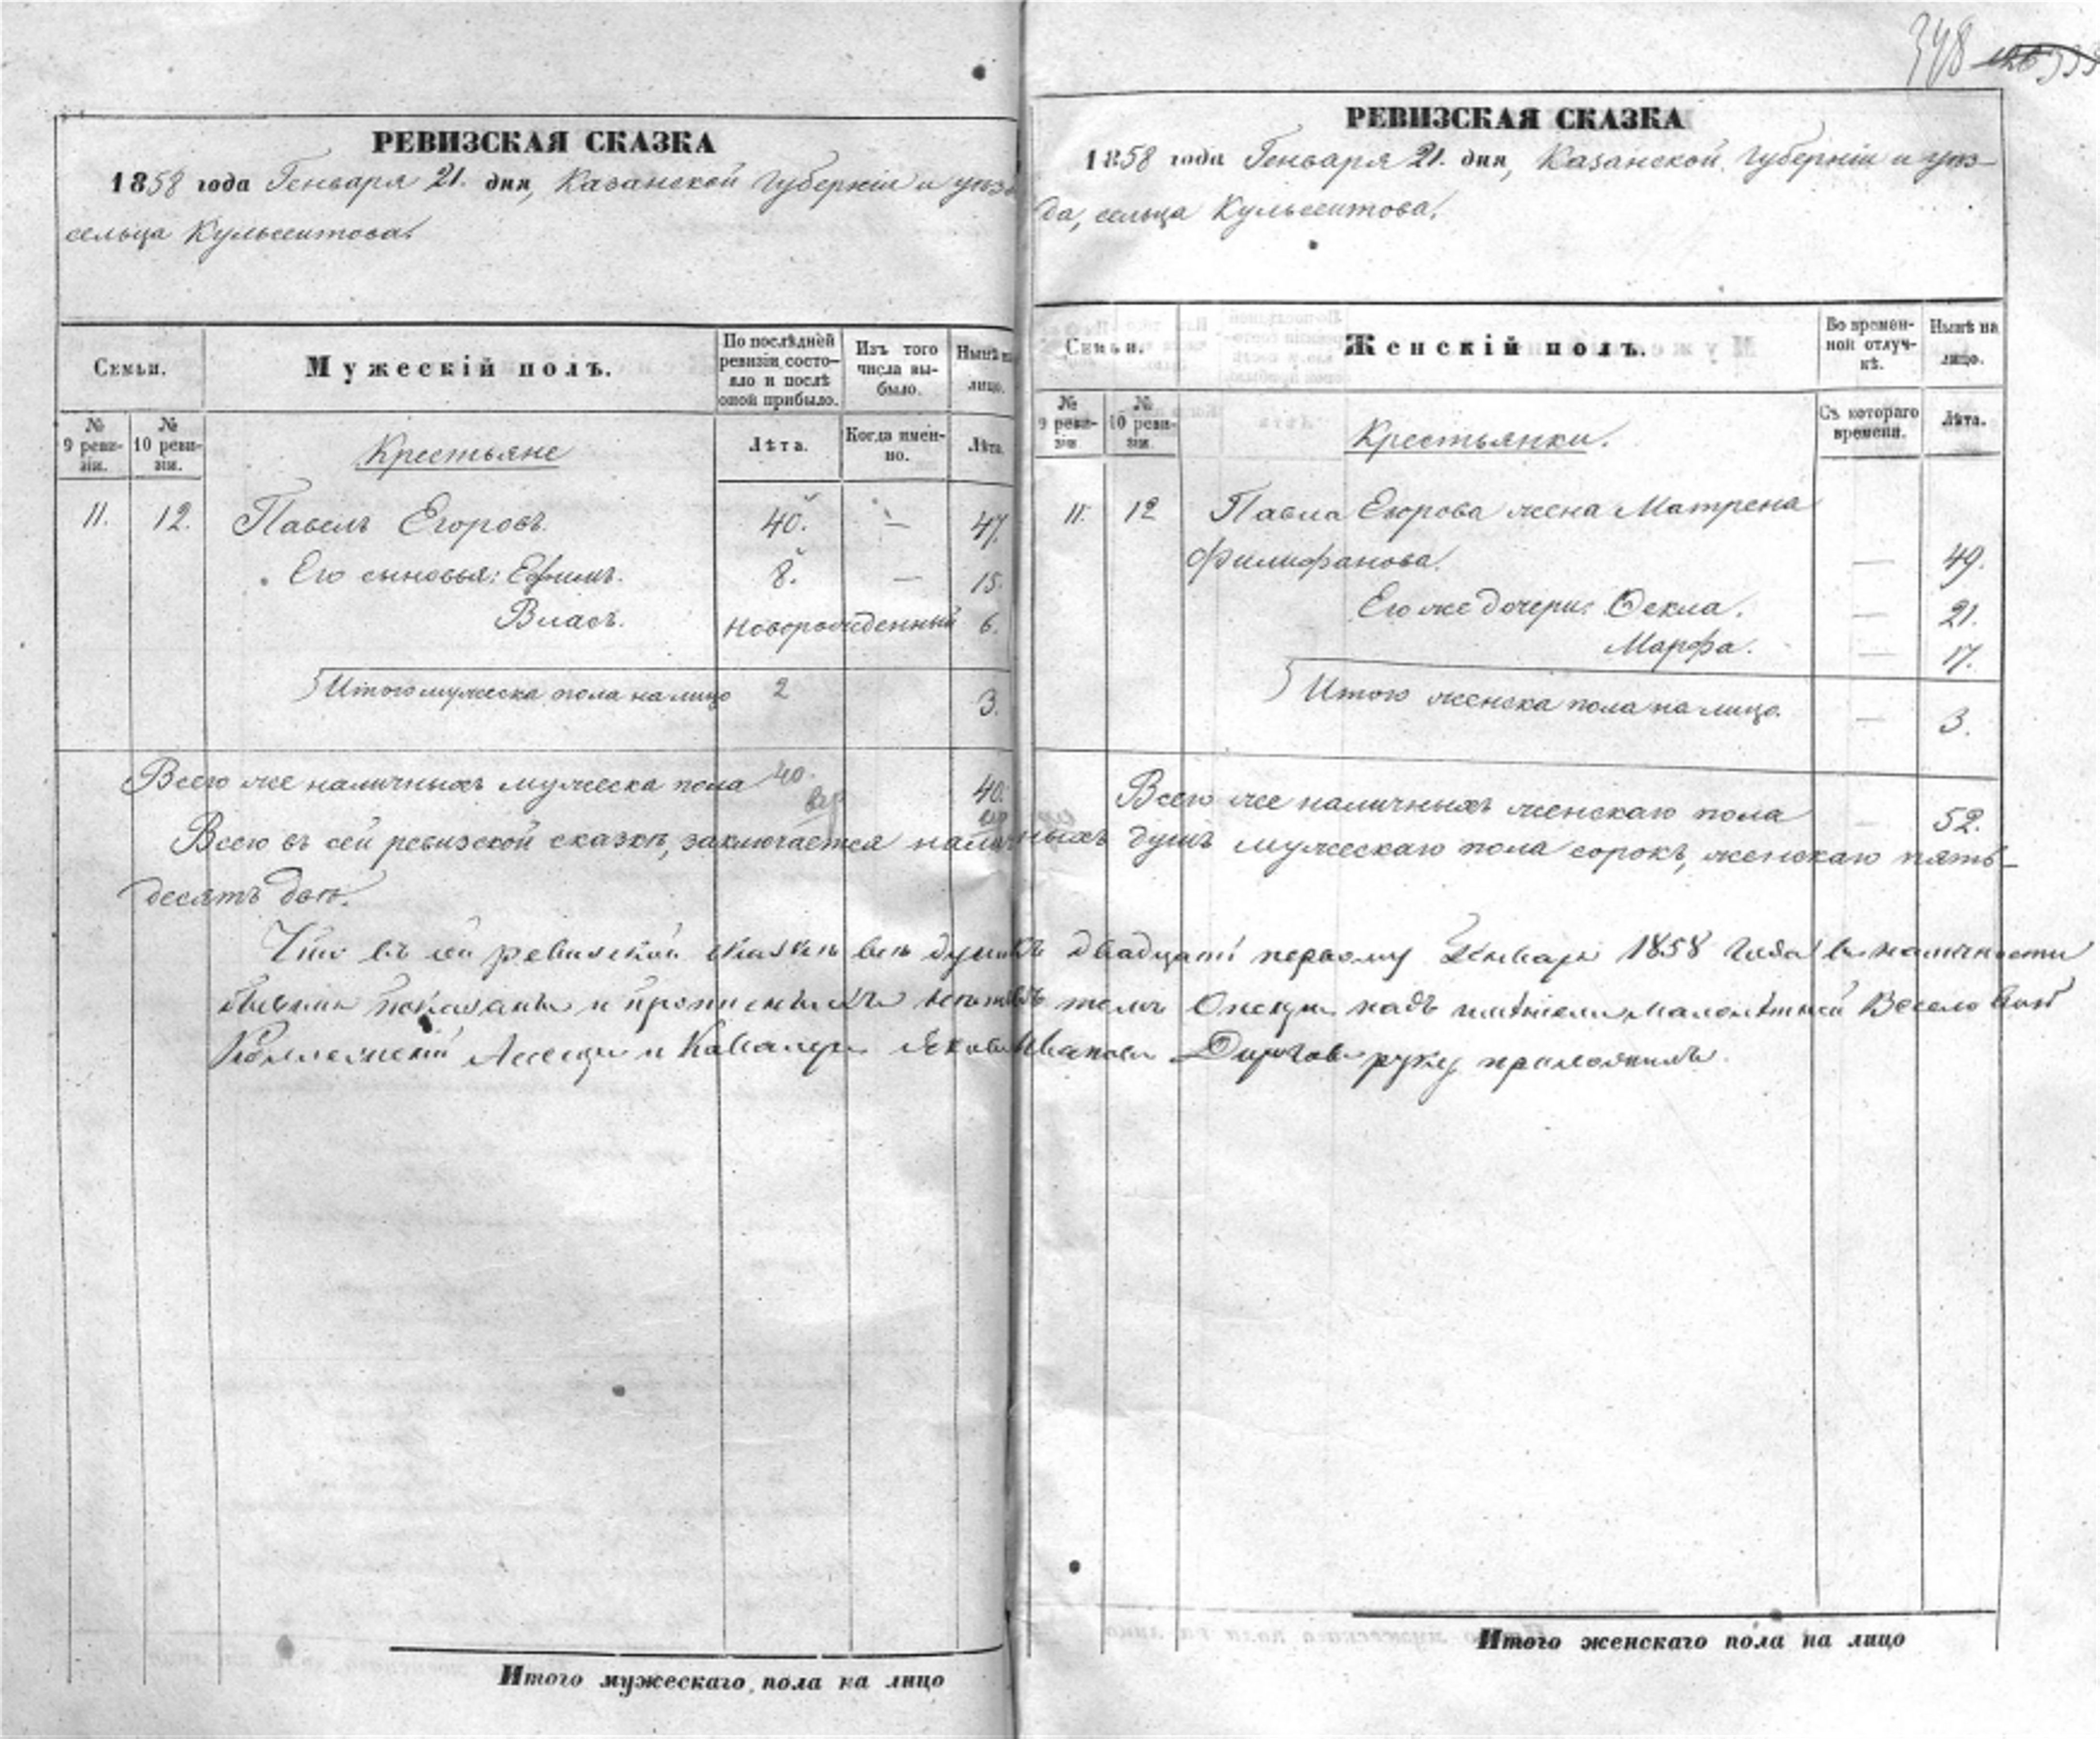 348
РЕВИЗСКАЯ СКАЗКА
1858 года Генваря 21. дня, Казанской Губерніи и уѣз
сельца Кульсеитова.
Семьи.
Мужескій полъ.
По послѣдней ревизіи состояло и послѣ оной прибыло.
Изъ того числа выбыло.
Нынѣ на лицо.
№ 9 ревизіи.
№ 10 ревизіи.
Крестьяне
Лѣта.
Когда именно.
Лѣта.
11. 12. Павелъ Егоровъ. 40. — 47.
Его сыновья: Ефимъ. 8. — 15.
Власъ. новорожденный 6.
Итого мужеска пола на лицо 2 3.
Всего же наличныхъ мужеска пола 40. 40.
Итого мужескаго пола на лицо
РЕВИЗСКАЯ СКАЗКА
1858 года Генваря 21. дня, Казанской Губерніи и уѣз-
да, сельца Кульсеитова.
Семьи.
Женскій полъ.
Во временной отлучкѣ.
Нынѣ на лицо.
№ 9 ревизіи
№ 10 ревизіи.
Крестьянки.
Съ котораго времени.
Лѣта.
11. 12 Павла Егорова жена Матрена
Филифанова. — 49.
Его же дочери: Фекла. — 21.
Марфа. — 17.
Итого женска пола на лицо. — 3.
Всего же наличныхъ женскаго пола — 52.
Всего въ сей ревизской сказкѣ, заключается наличныхъ душъ мужескаго пола сорокъ, женскаго пять-
десятъ двѣ.
Что въ сей ревизской сказкѣ всѣ души къ двадцать первому Генваря 1858 года въ наличности
бывшія показаны и прописныхъ нѣтъ въ томъ Опекунъ надъ имѣніемъ малолѣтней
Коллежскій Ассесоръ и Кавалеръ Яковъ Ивановъ руку приложилъ.
Итого женскаго пола на лицо